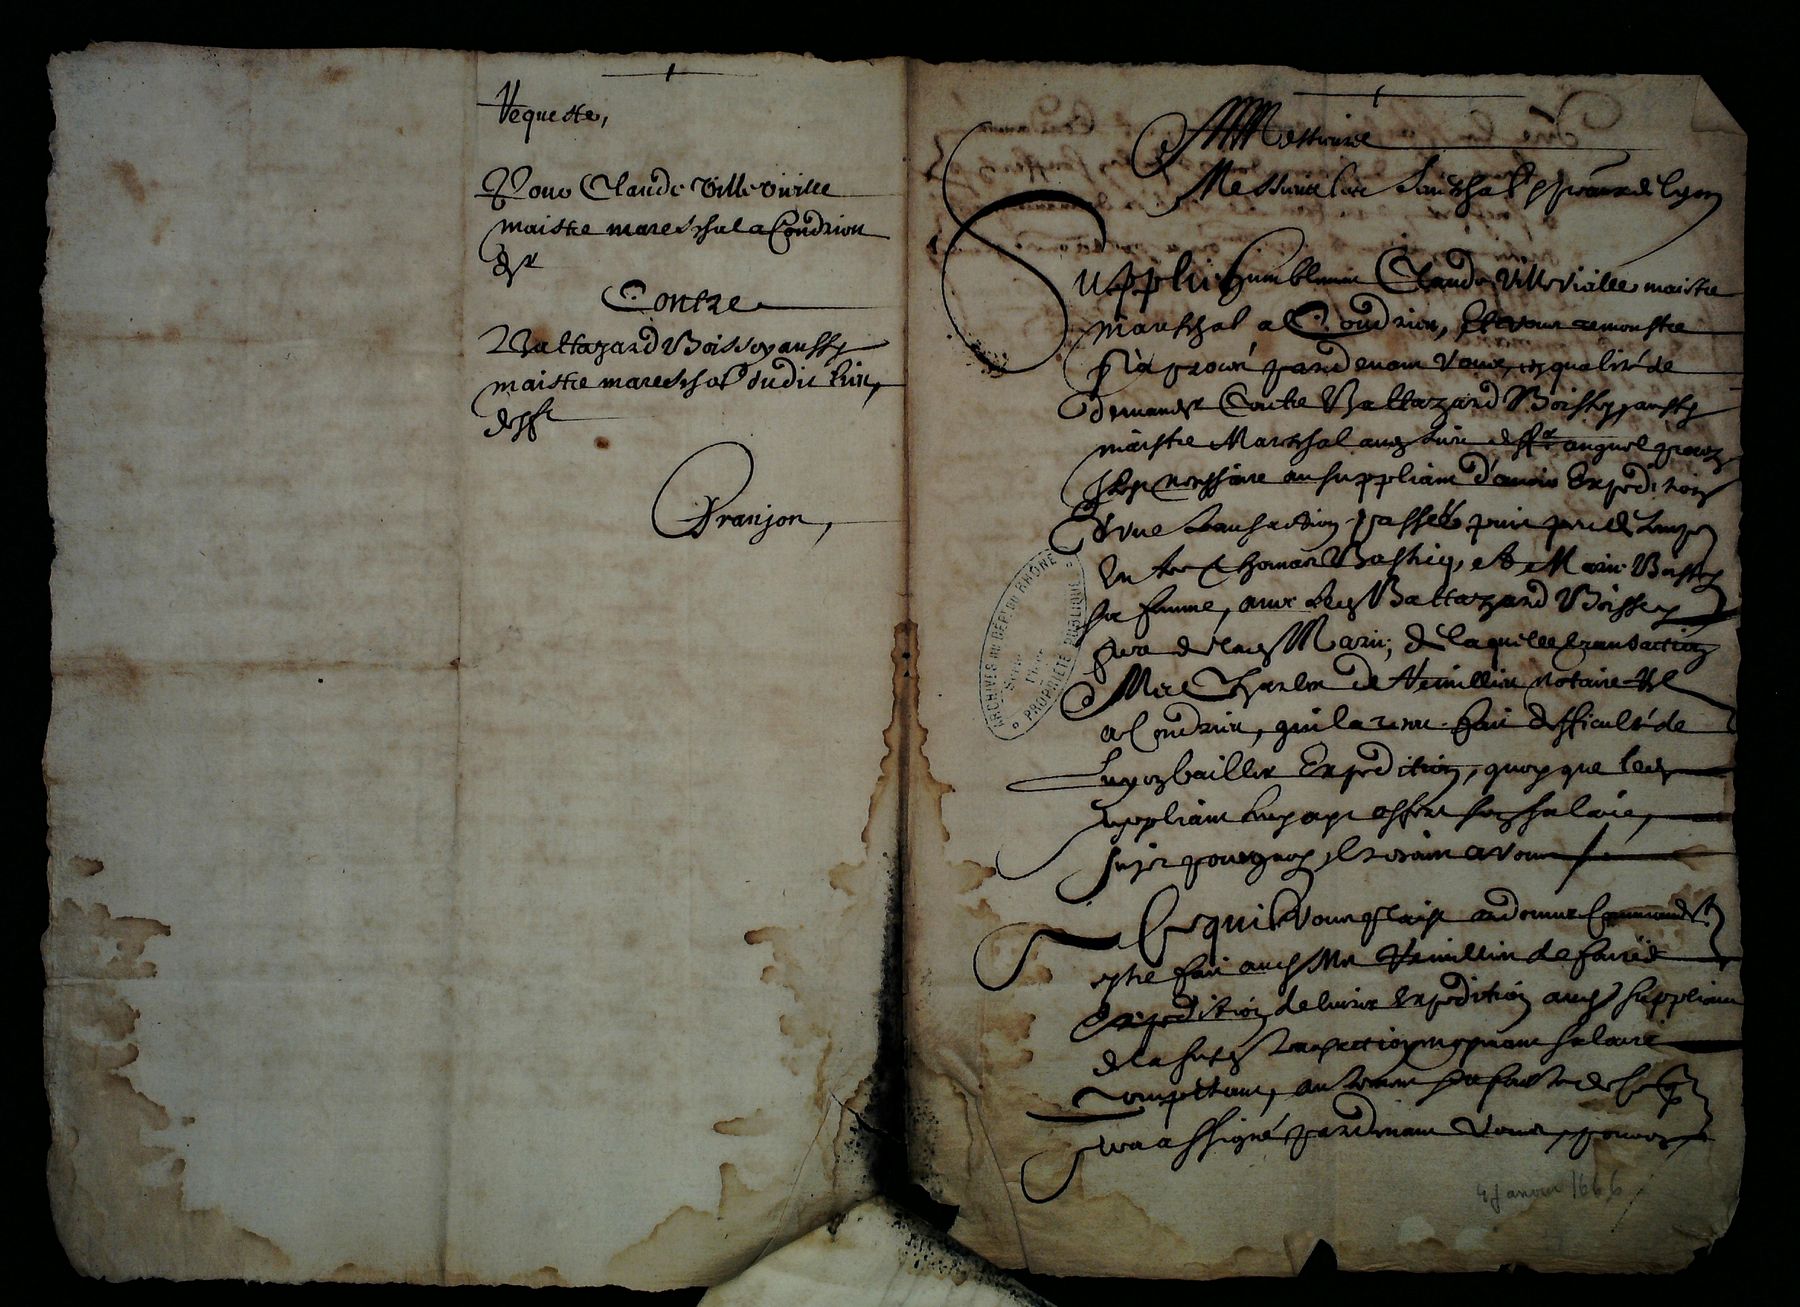 Requeste,
Pour Claude Villevieille
maistre mareschal a Condrieu
dr
Contre
Baltazard Boissy aussy
maistre mareschal dudit lieu,
deffr
Pranjon,
Messieurs
Messieurs les Seneschal &
de Lyon
Supplie humblement Claude Villevieille maistre
mareschal a Condrieu, Et vous remonstre
pardevant vous, en qualité de
demandr Contre Baltazard Boissy, aussy
maistre Mareschal auquel
Il est necessaire au suppliant d'avoir Expedition
d'une transaction passée
Entre Thomas et Marie Boissy
sa femme, avec led Baltazard Boissy
frere de lad Marie; de laquelle transaction
Mre Charles de Veuillieu notaire Rl
a Condrieu, qui la receu fait difficulté de
luy en bailler Expedition, quoyque led
suppliant luy aye offert son salaire,
sujet pourquoy il recourt a vous
Ce qu'il vous plaise ordonner Commandt
estre fait aud Mre Veuillieu de faire
Expedition delivrer Expedition aud suppliant
de la susd transaction moyennant salaire
competant, autrement a faute de ce
sera assigné pardevant vous,
4 Janvier 1666
ARCHIVES DU DEPT DU RHÔNE
PROPRIÉTÉ PUBLIQUE